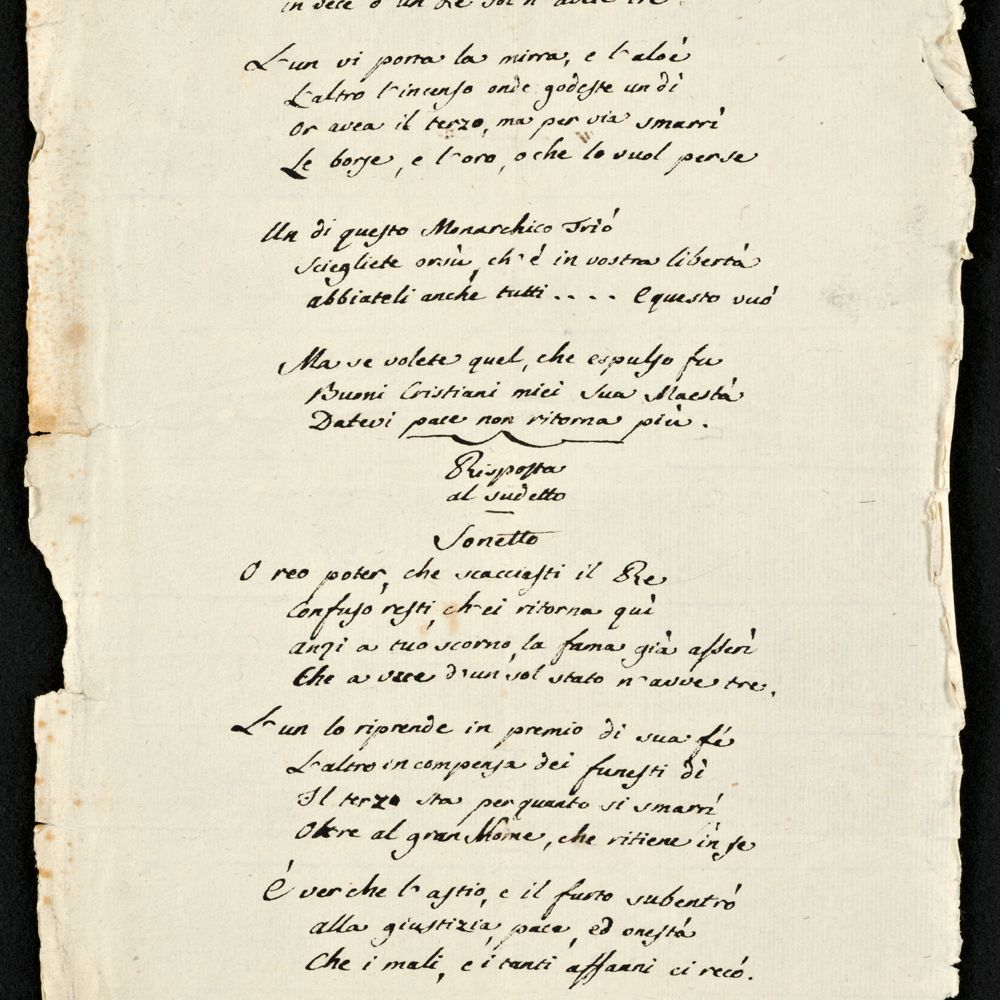 in vece d'un Re sol n'avete tre.
L'un vi porta la mirra, e l'aloè
L'altro l'incenso onde godeste un dì
Or avea il terzo, ma per via smarrì
Le borse, e l'oro, o che lo vuol per se
Un di questo Monarchico Triò
Sciegliete orsù, ch'é in vostra libertà
abbiateli anche tutti .... e questo vuó
Ma se volete quel, che espulso fu
Buoni Cristiani miei Sua Maestà
Datevi pace non ritorna più.
Risposta
al sudetto
Sonetto
O reo poter, che scacciasti il Re
Confuso resti, ch'ei ritorna quì
anzi a tuo scorno, la fama già asserì
Che a vece d'un sol stato n'avve tre.
L'un lo riprende in premio di sua fé
L'altro in compensa dei funesti dì
Il terzo sta per quanto si smarrì
Oltre al gran Nome, che ritiene in se
É ver che l'astio, e il furto subentró
alla giustizia, pace, ed onestà
Che i mali, e i tanti affanni ci recó.